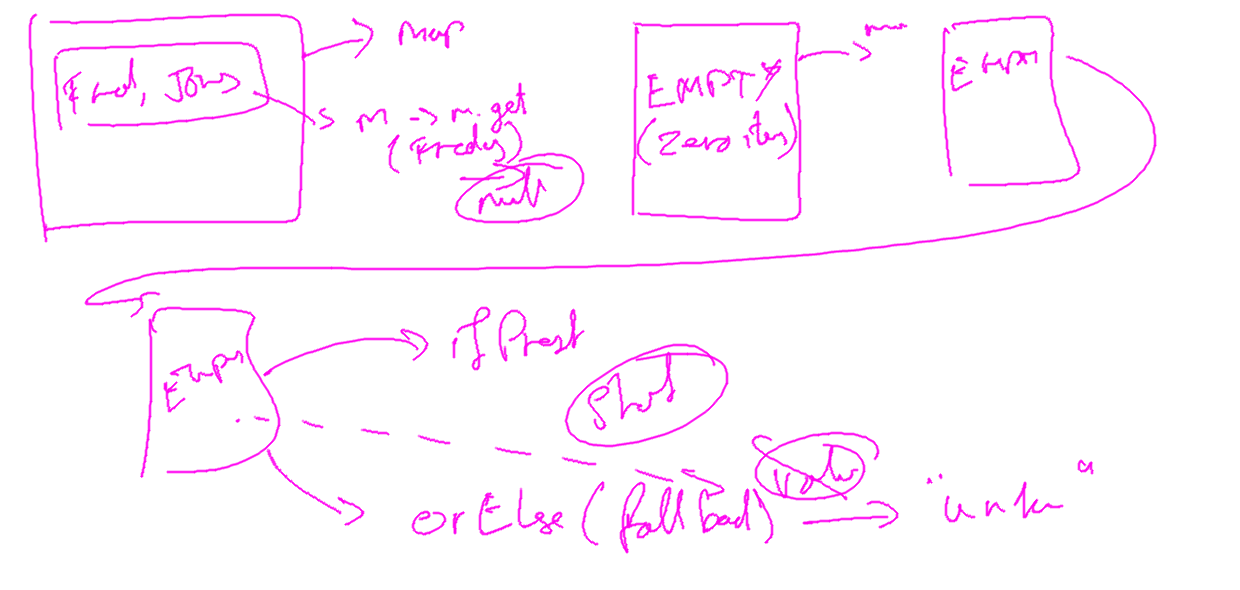 Fred, Jones
map
m -> m.get
(Freddy)
null
EMPTY
(Zero items)
Empty
Empty
if Prest
orElse (fallback)
"unkn"